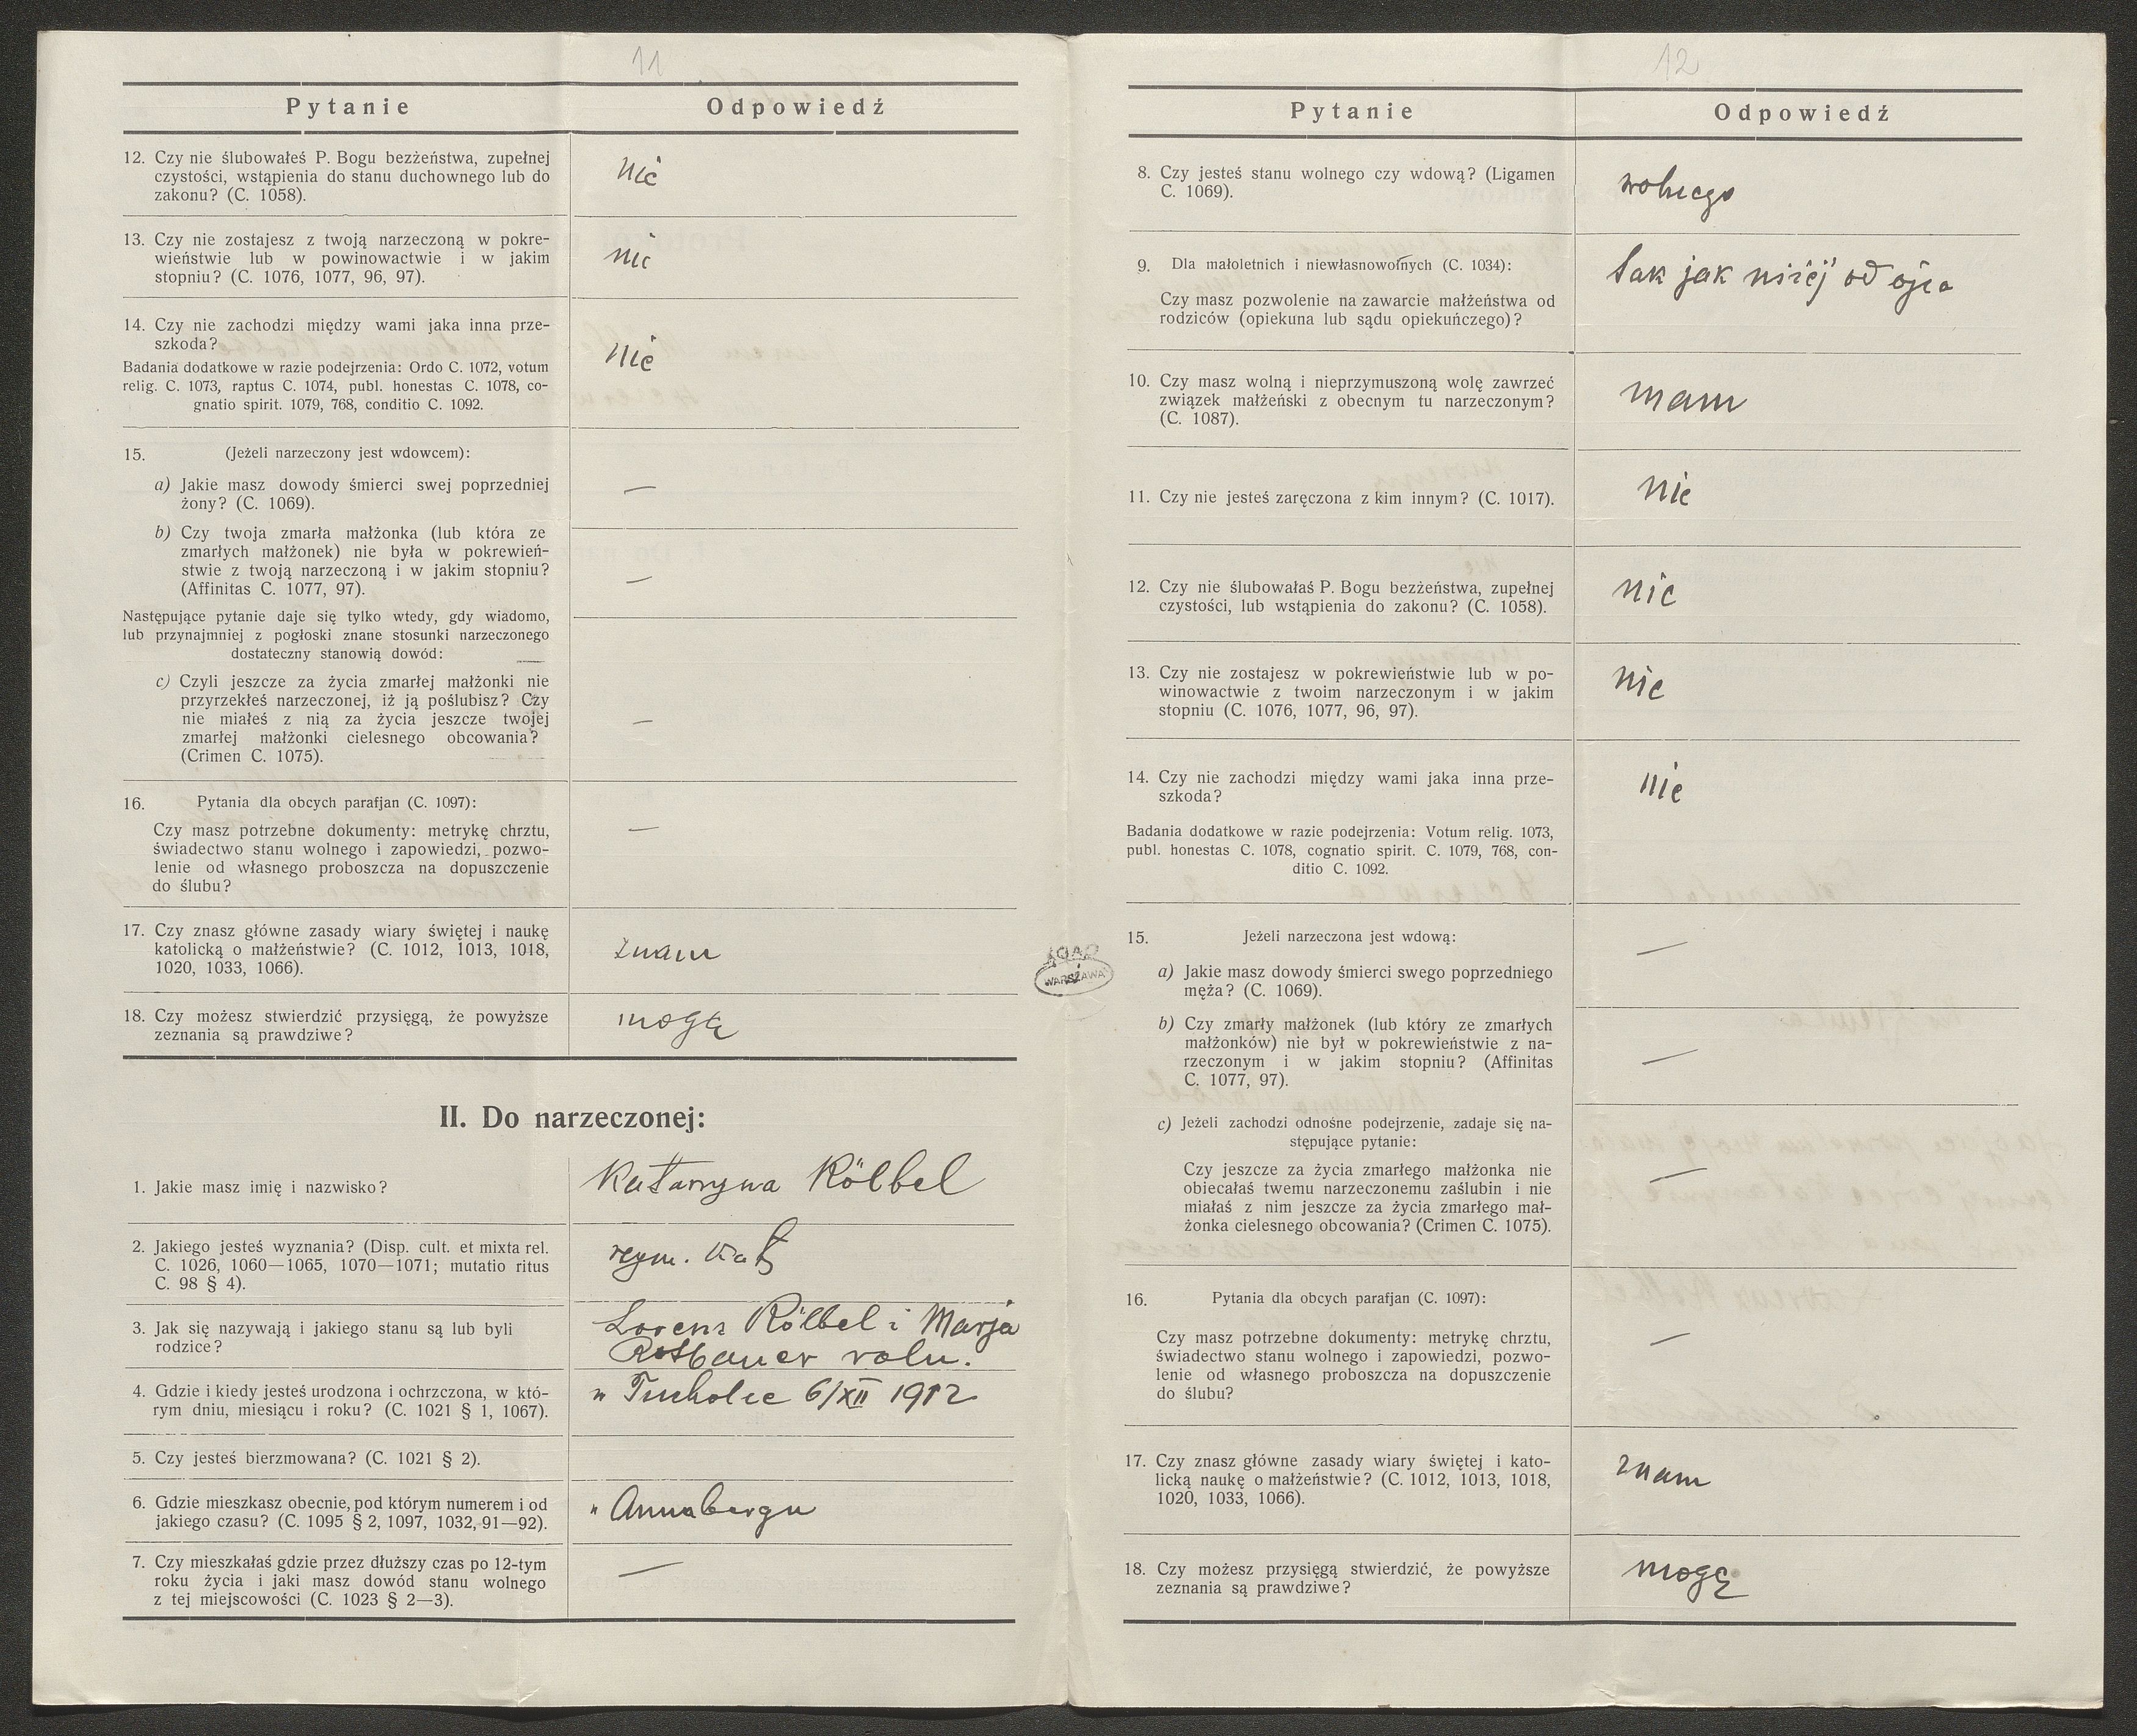 11
Pytanie Odpowiedź
12. Czy nie ślubowałeś P. Bogu bezżeństwa, zupełnej
czystości, wstąpienia do stanu duchownego lub do
zakonu? (C. 1058).
nie
13. Czy nie zostajesz z twoją narzeczoną w pokre-
wieństwie lub w powinowactwie i w jakim
stopniu? (C. 1076, 1077, 96, 97).
nie
14. Czy nie zachodzi między wami jaka inna prze-
szkoda?
Badania dodatkowe w razie podejrzenia: Ordo C. 1072, votum
relig. C. 1073, raptus C. 1074, publ. honestas C. 1078, co-
gnatio spirit. 1079, 768, conditio C. 1092.
nie
15. (Jeżeli narzeczony jest wdowcem):
a) Jakie masz dowody śmierci swej poprzedniej
żony? (C. 1069).
—
b) Czy twoja zmarła małżonka (lub która ze
zmarłych małżonek) nie była w pokrewień-
stwie z twoją narzeczoną i w jakim stopniu?
(Affinitas C. 1077, 97).
—
Następujące pytanie daje się tylko wtedy, gdy wiadomo,
lub przynajmniej z pogłoski znane stosunki narzeczonego
dostateczny stanowią dowód:
c) Czyli jeszcze za życia zmarłej małżonki nie
przyrzekłeś narzeczonej, iż ją poślubisz? Czy
nie miałeś z nią za życia jeszcze twojej
zmarłej małżonki cielesnego obcowania?
(Crimen C. 1075).
—
16. Pytania dla obcych parafjan (C. 1097):
Czy masz potrzebne dokumenty: metrykę chrztu,
świadectwo stanu wolnego i zapowiedzi, pozwo-
lenie od własnego proboszcza na dopuszczenie
do ślubu?
—
17. Czy znasz główne zasady wiary świętej i naukę
katolicką o małżeństwie? (C. 1012, 1013, 1018,
1020, 1033, 1066).
znam
18. Czy możesz stwierdzić przysięgą, że powyższe
zeznania są prawdziwe?
mogę
II. Do narzeczonej:
1. Jakie masz imię i nazwisko?
Katarzyna Kölbel
2. Jakiego jesteś wyznania? (Disp. cult. et mixta rel.
C. 1026, 1060—1065, 1070—1071; mutatio ritus
C. 98 § 4).
rzym. kat
3. Jak się nazywają i jakiego stanu są lub byli
rodzice?
Lorenz Kölbel i Marja
Rotbauer roln.
4. Gdzie i kiedy jesteś urodzona i ochrzczona, w któ-
rym dniu, miesiącu i roku? (C. 1021 § 1, 1067).
w Tucholce 6/XII 1912
5. Czy jesteś bierzmowana? (C. 1021 § 2).
6. Gdzie mieszkasz obecnie, pod którym numerem i od
jakiego czasu? (C. 1095 § 2, 1097, 1032, 91—92).
w Annabergu
7. Czy mieszkałaś gdzie przez dłuższy czas po 12-tym
roku życia i jaki masz dowód stanu wolnego
z tej miejscowości (C. 1023 § 2—3).
—
AGAD
WARSZAWA
12
Pytanie Odpowiedź
8. Czy jesteś stanu wolnego czy wdową? (Ligamen
C. 1069).
wolnego
9. Dla małoletnich i niewłasnowolnych (C. 1034):
Czy masz pozwolenie na zawarcie małżeństwa od
rodziców (opiekuna lub sądu opiekuńczego)?
tak jak niżej od ojca
10. Czy masz wolną i nieprzymuszoną wolę zawrzeć
związek małżeński z obecnym tu narzeczonym?
(C. 1087).
mam
11. Czy nie jesteś zaręczona z kim innym? (C. 1017).
nie
12. Czy nie ślubowałaś P. Bogu bezżeństwa, zupełnej
czystości, lub wstąpienia do zakonu? (C. 1058).
nie
13. Czy nie zostajesz w pokrewieństwie lub w po-
winowactwie z twoim narzeczonym i w jakim
stopniu (C. 1076, 1077, 96, 97).
nie
14. Czy nie zachodzi między wami jaka inna prze-
szkoda?
nie
Badania dodatkowe w razie podejrzenia: Votum relig. 1073,
publ. honestas C. 1078, cognatio spirit. C. 1079, 768, con-
ditio C. 1092.
15. Jeżeli narzeczona jest wdową:
a) Jakie masz dowody śmierci swego poprzedniego
męża? (C. 1069).
—
b) Czy zmarły małżonek (lub który ze zmarłych
małżonków) nie był w pokrewieństwie z na-
rzeczonym i w jakim stopniu? (Affinitas
C. 1077, 97).
—
c) Jeżeli zachodzi odnośne podejrzenie, zadaje się na-
stępujące pytanie:
Czy jeszcze za życia zmarłego małżonka nie
obiecałaś twemu narzeczonemu zaślubin i nie
miałaś z nim jeszcze za życia zmarłego mał-
żonka cielesnego obcowania? (Crimen C. 1075).
—
16. Pytania dla obcych parafjan (C. 1097):
Czy masz potrzebne dokumenty: metrykę chrztu,
świadectwo stanu wolnego i zapowiedzi, pozwo-
lenie od własnego proboszcza na dopuszczenie
do ślubu?
—
17. Czy znasz główne zasady wiary świętej i kato-
licką naukę o małżeństwie? (C. 1012, 1013, 1018,
1020, 1033, 1066).
znam
18. Czy możesz przysięgą stwierdzić, że powyższe
zeznania są prawdziwe?
mogę